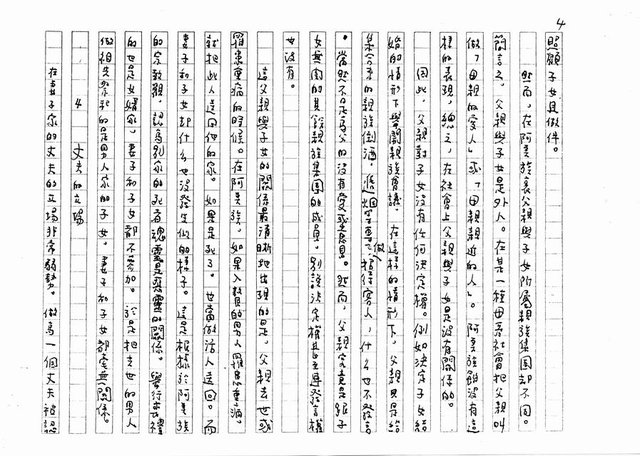 4
照顧子女且做件。
然而，在阿美族裏父親與子女所屬親族集團却不同。
簡言之，父親與子女是外人。在某一種母系社會把父親叫
做「母親的愛人」或「母親親近的人」。阿美族雖沒有這
樣的表現，總之，在社會上父親與子女是沒有關係的。
因此，父親對子女沒有任何決定權。例如決定子女結
婚的情形下舉開親族會議，在這樣的情形下，父親只是給
集合來的親族倒酒，遞烟等專做招待客人，什么也不發言
。當然不是為父的沒有愛或意見。然而，父親究竟是跟子
女無關的其餘親族集團的成員，別說決定權甚至連發言權
女沒有。
這父親與子女的關係最清晰地出現的是，父親去世或
罹患重病的時候。在阿美族，如果入贅的男人罹患重病，
就把此人送回他的家。如果是死了，也當做活人送回。而
妻子和子女都什么也沒發生似的樣子。這是根據於阿美族
的宗教觀，認為別家的死者魂靈是惡靈的關係。舉行喪禮
的也是女婿家，妻子和子女都不參加。於是把去世的男人
做祖先祭祀的是男人家的子女。妻子和子女都毫無關係。
4 丈夫的立場
在妻子家的丈夫的立場非常弱勢。做為一個丈夫被認